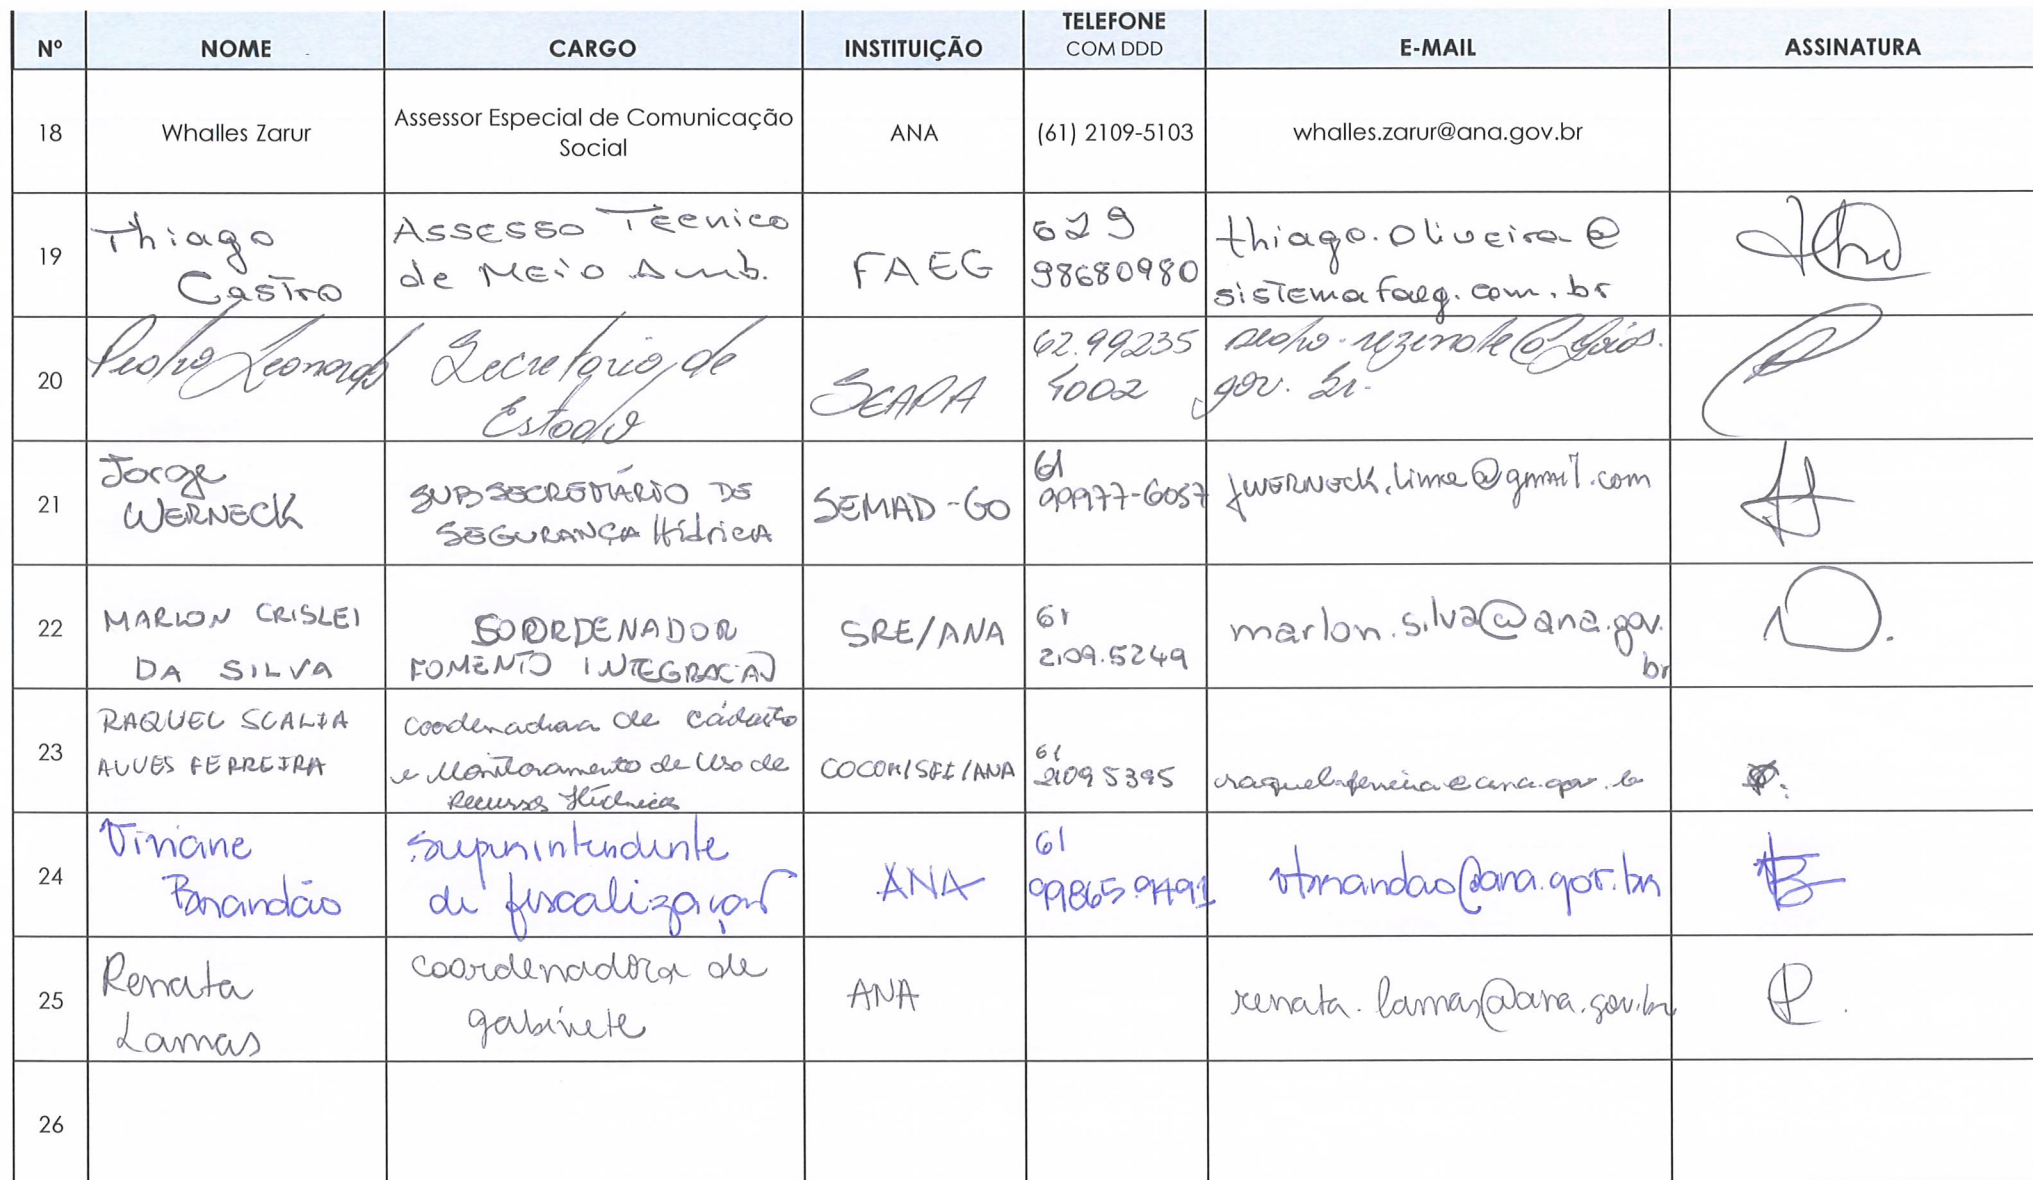 Nº NOME CARGO INSTITUIÇÃO TELEFONE COM DDD E-MAIL ASSINATURA
18 Whalles Zarur Assessor Especial de Comunicação Social ANA (61) 2109-5103 whalles.zarur@ana.gov.br
19 Thiago Castro Assesso Técnico de Meio Amb. FAEG 629 98680980 thiago.oliveira@ sistemafaeg.com.br
20 Pedro Leonardo Secretario de Estado SEAPA 62.99235 4002 pedro.rezende@goias. gov.br.
21 Jorge WERNECK SUBSECRETÁRIO DE SEGURANÇA Hídrica SEMAD-GO 61 99977-6057 jwerneck.lima@gmail.com
22 MARLON CRISLEI DA SILVA COORDENADOR FOMENTO INTEGRACAO SRE/ANA 61 2109.5249 marlon.silva@ana.gov. br
23 RAQUEL SCALIA ALVES FERREIRA Coordenadora de cadastro e Monitoramento de Uso de Recursos Hídricos COCOM/SFI/ANA 61 2109 5395 raquel.ferreira@ana.gov.br
24 Viviane Brandão Superintendente de fiscalização ANA 61 99865.9491 vbrandao@ana.gov.br
25 Renata Lamas Coordenadora de gabinete ANA renata.lamas@ana.gov.br
26